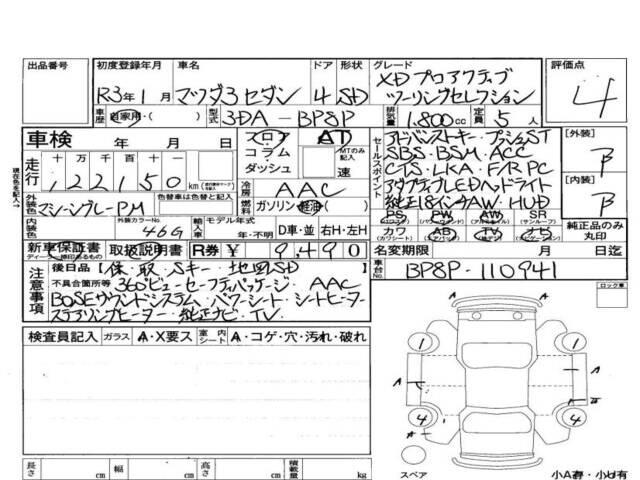 出品番号 初度登録年月 車名 ドア 形状 グレード 評価点
R3年1月 マツダ3セダン 4 SD XDプロアクティブ ツーリングセレクション 4
車歴 自家用・( ) 型式 3DA-BP8P 排気量 1.800cc 定員 5人
車検 年 月 日 フロア AT セールスポイント アドバンストキー・プッシュST [外装] B
走行 十 万 千 百 十 一 コラム MTのみ記入 SBS・BSM・ACC
122150 km ダッシュ 速 CTS・LKA・F/R PC
現在色を記入→ 外装色 マシーングレーPM 色替車は色替と記入 冷房 AAC アダプティブLEDヘッドライト [内装] B
燃料 ガソリン・軽油・( ) 純正18インチAW・HUD
内装色 外装カラーNo. 46G 輸入車 モデル年式 年・不明 D車・並 右H・左H
PS PW SR
カワ AB TV ナビ 純正品のみ丸印
新車保証書 取扱説明書 R券 ¥ 9,490 名変期限 月 日迄
注意事項 後日品 【保、取 Sキー・地図SD 車台No. BP8P-110941
不具合箇所等 360°ビュー・セーフティパッケージ AAC
BOSEサウンドシステム・パワーシート・シートヒーター
ステアリングヒーター・純正ナビ・TV ロック車
検査員記入 ガラス A・X要ス 室内シート A・コゲ・穴・汚れ・破れ
1 1
A A
4 4
A
スペア 小A有・小U有
長さ cm 幅 cm 高さ cm 積載量 kg